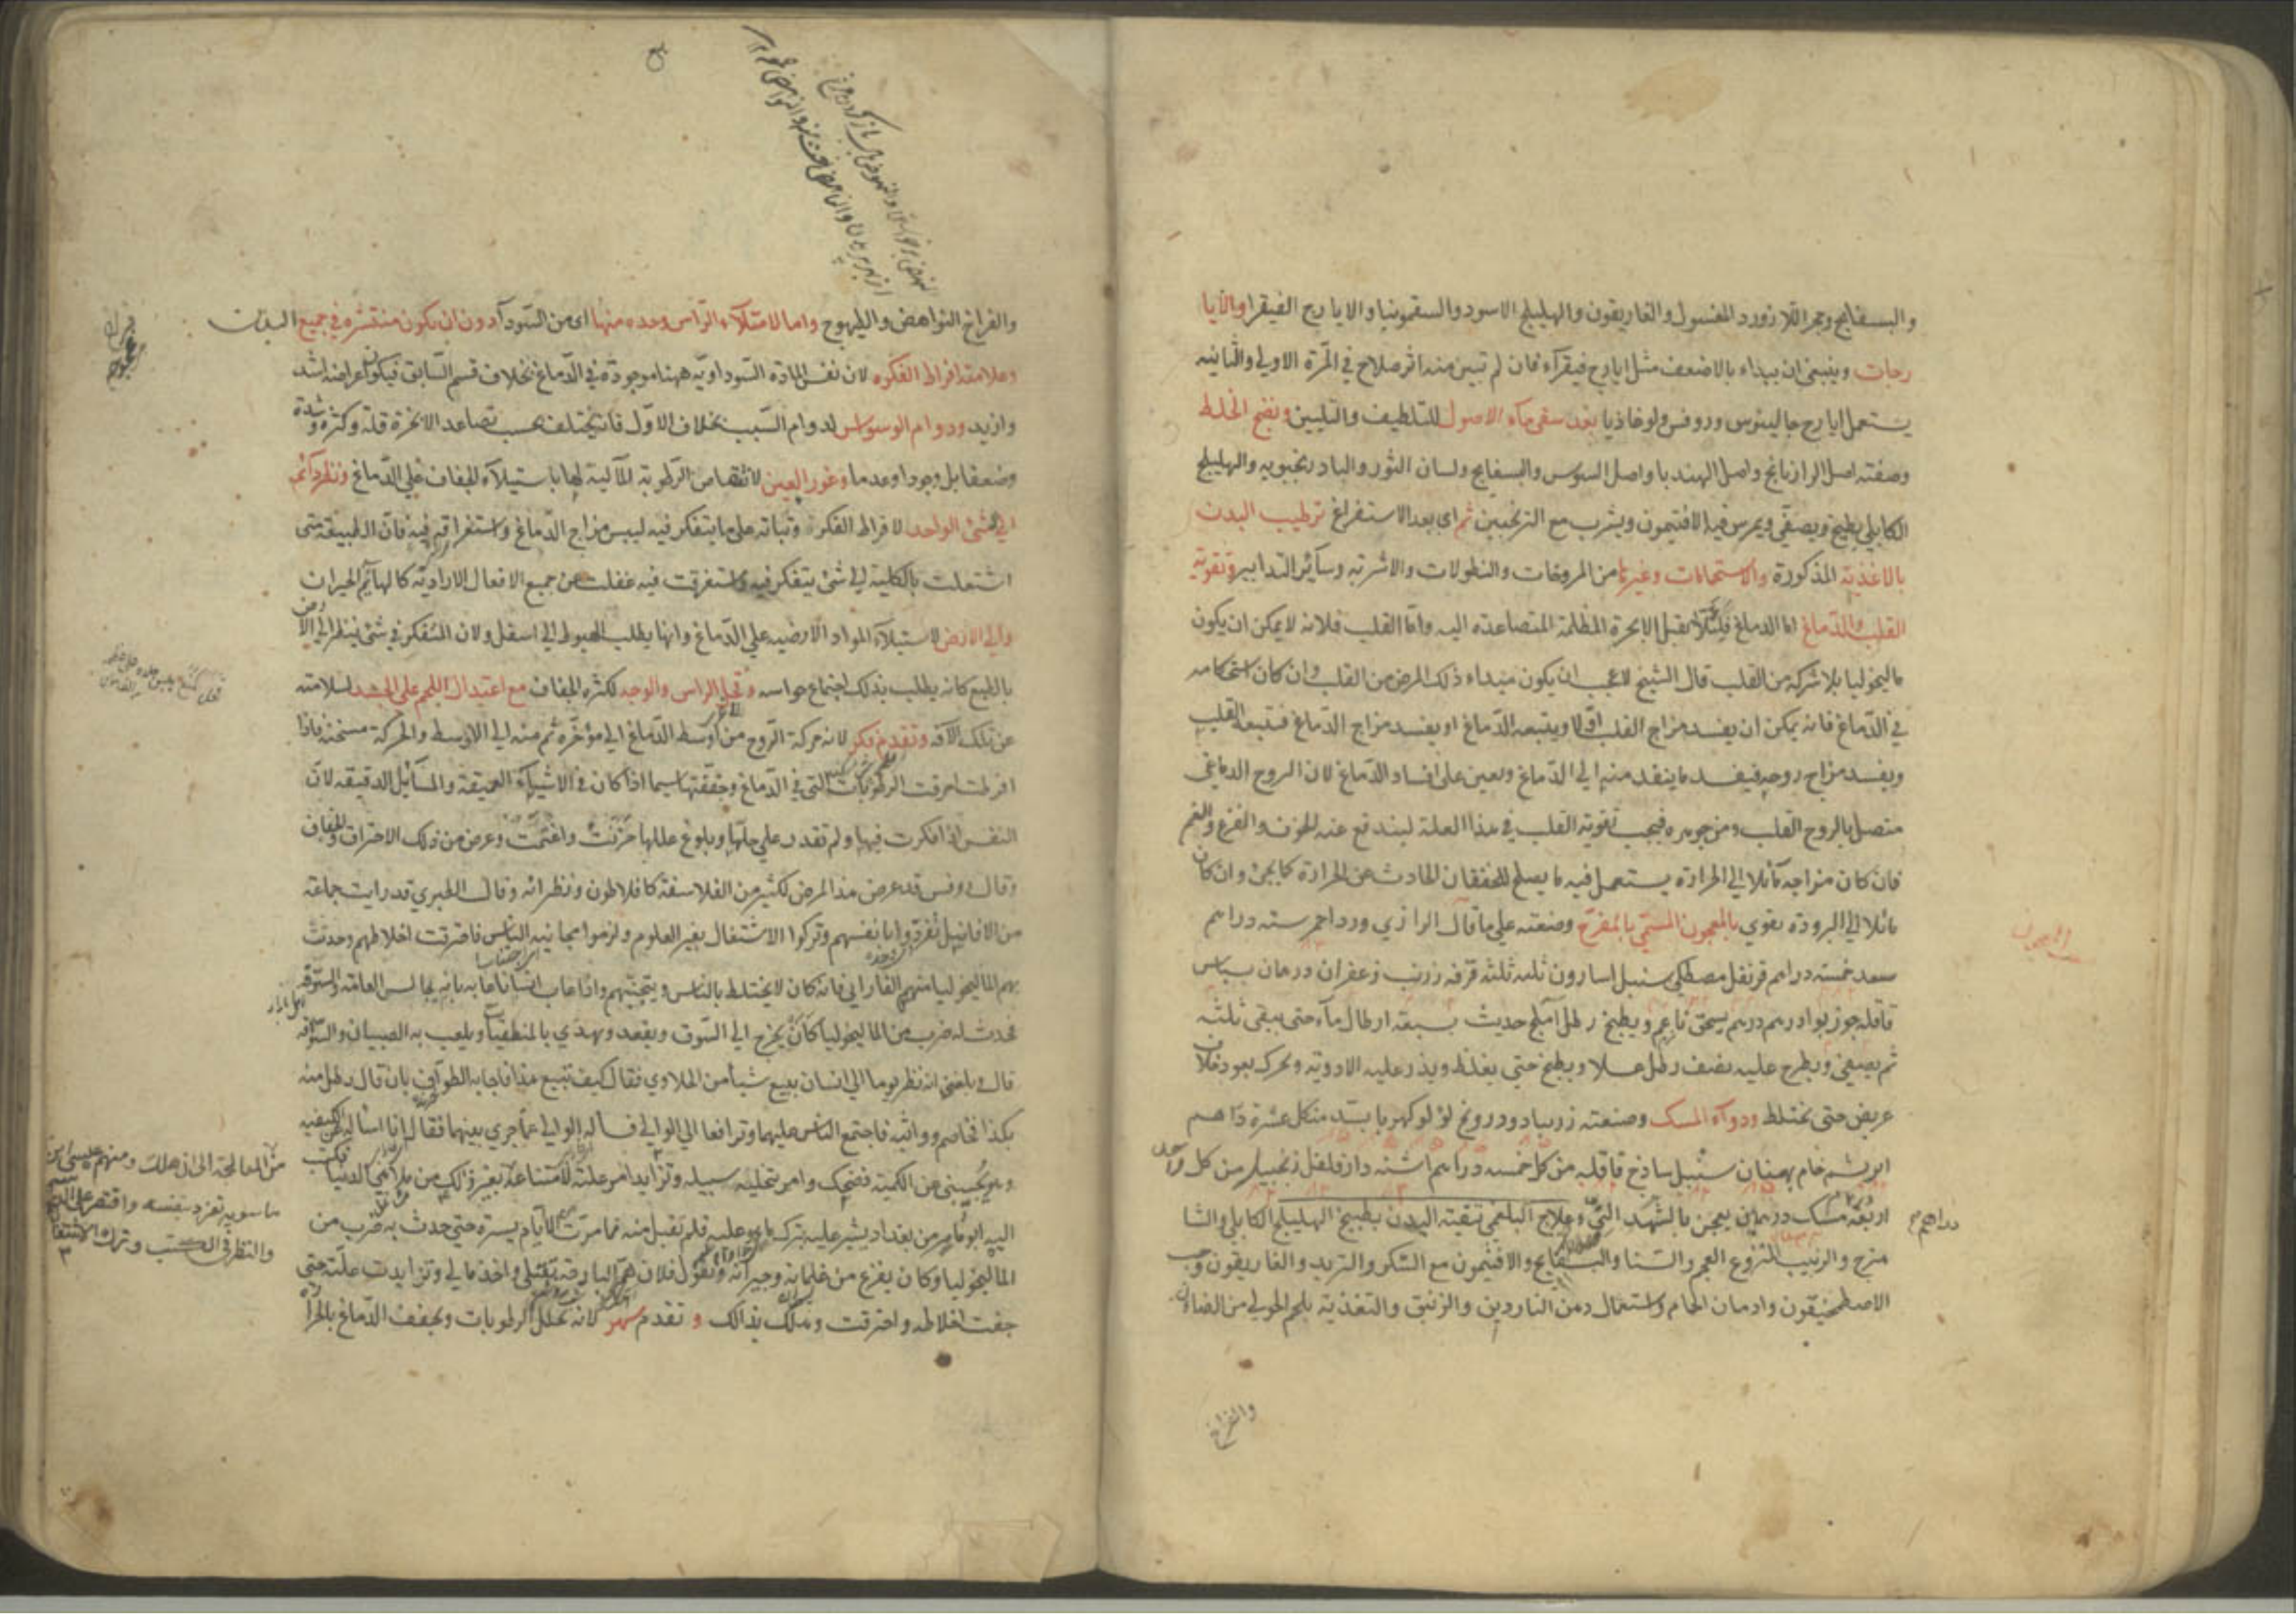 والبسفايج وحجر اللازورد المغسول والغاريقون والهليلج الاسود والسقمونيا والايارج الفيقرا والايا
رجات وينبغي ان يبداء بالاضعف مثل ايارج فيقرآء فان لم تبين منه اثر صلاح في المرّة الاولي والثانيه
يستعمل ايارج جالينوس وروفس ولوغاذيا بعد سقي مآء الاصول للتلطيف والتليين ونضج الخلط
وصفته اصل الرازيانج واصل الهندبا واصل السوس والبسفايج ولسان الثور والبادرنجبويه والهليلج
الكابلي يطبخ ويصفّي ويمرس فيه الافتيمون ويشرب مع الترنجبين ثم اي بعد الاستفراغ ترطيب البدن
بالاغذية المذكورة والاستحمامات وغيرها من المروخات والنطولات والاشربه وسآئر التدابير وتقوية
القلب والدّماغ امّا الدماغ فلئلا يقبل الابخرة المظلمة المتصاعدة اليه وامّا القلب فلانه لا يمكن ان يكون
ماليخوليا بلا شركه من القلب قال الشيخ لا عجب ان يكون مبداء ذلك المرض من القلب وان كان استحكامه
في الدّماغ فانه يمكن ان يفسد مزاج القلب اوّلا ويتبعه الدّماغ او يفسد مزاج الدّماغ فيتبعه القلب
ويفسد مزاج روحه فيفسد ما ينفد منه الي الدّماغ ويعين علي افساد الدّماغ لان الروح الدماغي
متصل بالروح القلب ومن جوهره فيجب تقوية القلب في هذا العلة ليندفع عنه الخوف والفزع والغم
فان كان مزاجه مآئلا الي الحرارة يستعمل فيه ما يصلح للخفقان الحادث عن الحرارة كما يجئ وان كان
مائلا الي البرودة يقوي بالمعجون المسمّي بالمفرّح وصنعته علي ما قال الرازي ورد احمر سته دراهم
سعد خمسة دراهم قرنفل مصطكي سنبل اسارون ثلثه ثلثه قرفه زرنب زعفران درهمان بسباس
قاقله جوز بوا درهم درهم يسحق ناعم ويطبخ رطل آملج حديث بسبعة ارطال مآء حتى يبقي ثلثه
ثم يصفي ويطرح عليه نصف رطل عسلا ويطبخ حتى يغلظ ويذر عليه الادوية ويحرك بعود خلاف
عريض حتى يختلط ودوآء المسك وصنعته زرنباد ودرونج لؤلو كهربا بسّد من كل عشرة دراهم
ابريشم خام بهمنان سنبل ساذج قاقله من كل خمسه دراهم اشنه دارفلفل زنجبيل من كل واحد
اربعة مسك درهمان يعجن بالشهد النيّ وعلاج البلغمي تنقية البدن بطبيخ الهليلج الكابلي والشا
هترج والزبيب المنزوع العجم والسنا والبسفايج والافتيمون مع السّكر والتربد والغاريقون وحب
الاصطمخيقون وادمان الحمام واستعمال دهن الناردين والزنبق والتغذية بلحم الحولي من الضان
المعجون
دراهم
والفراخ
والفراخ النواهض والطيهوج واما لامتلآء الرّاس وحده منها اي من السّودآء دون ان يكون منتشره في جميع البدن
وعلامته افراط الفكره لان نفس المادّه السّوداويّه ههنا موجودة في الدّماغ بخلاف قسم السّابق فيكون اعراضه اشد
وازيد ودوام الوسواس لدوام السّبب بخلاف الاوّل فانه يختلف بحسب تصاعد الابخرة قلة وكثرة وشدة
وضعفا بل وجودا وعدما وغور العين لانتقاص الرّطوبة المآلية لها باستيلآء الجفاف علي الدّماغ ونظر دآئم
الي الشئ الواحد لافراط الفكر وثباته علي ما يتفكر فيه ليبس مزاج الدّماغ واستغراقه فيه فان الطبيعة متى
اشتغلت بالكلية الي شئ يتفكر فيه واستغرقت فيه غفلت عن جميع الافعال الاراديّه كالهآئم الحيران
والي الارض لاستيلآء المواد الارضيه علي الدّماغ وانها يطلب الهبوط الي اسفل ولان المتفكر في شئ ينظر الي الارض
بالطبع كانه يطلب بذلك اجتماع حواسه وقحل الراس والوجه لكثره الجفاف مع اعتدال اللحم علي الجسد لسلامته
عن تلك الآفه وتقدم فكر لانه حركة الرّوح من اوسط الدّماغ الي مؤخّره ثم منه الي الاوسط والحركة مسخنة فاذا
افرطت احرقت الرطوبات التي في الدّماغ وجففتها سيما اذا كان في الاشيآء العميقة والمسآئل الدقيقه لان
النفس اذا فكرت فيها ولم تقدر علي حلّها وبلوغ عللها حزنت واغتمّت وعرض من ذلك الاحتراق والجفاف
وقال روفس قد عرض هذا المرض لكثير من الفلاسفة كافلاطون ونظرائه وقال الطبري قد رايت جماعة
من الافاضل تفرّدوا بانفسهم وتركوا الاشتغال بغير العلوم ولزموا مجانبه النّاس فاحترقت اخلاطهم وحدث
بهم الماليخوليا منهم الفارابي فانه كان لا يختلط بالناس ويتجنبهم واذا عاب انسانا عابه بانه يجالس العامة والسّوقه
فحدث له ضرب من الماليخوليا كان يخرج الي السّوق ويقعد ويهذي بالمنطقيات ويلعب به الصبيان والسّوقه
قال وبلغني انه نظر يوما الي انسان يبيع شيأ من الملاوي فقال كيف تبيع هذا فاجابه الطوّاف بان قال رطل منه
بكذا فخاصم وواثبه فاجتمع الناس عليهما وترافعا الي الوالي فساله الوالي عمّا جري بينهما فقال انا اسأله عن الكيفيه
وهو يجيبني عن الكمية فضحك وامر بتخلية سبيله وتزايد امر علته لامتناعه
اليه ابو ماهر من بغداد يشير عليه بترك ما هو عليه فلم تقبل منه فما مرّت الايام يسيرة حتى حدث به ضرب من
الماليخوليا وكان يفزع من غلمانه وجيرانه ويقول فلان همّ البارحة بقتلي واخذ مالي وتزايدت علّته حتى
جفت اخلاطه واحترقت وهلك بذالك و تقدم سهر لانه تحلل الرطوبات ويجفف الدّماغ بالحرا
من المعالجة الي ان هلك ومنهم عيسى ابن
ماسويه تفرد بنفسه واقتصر علي
والنظر في الكتب وترك الاشتغال